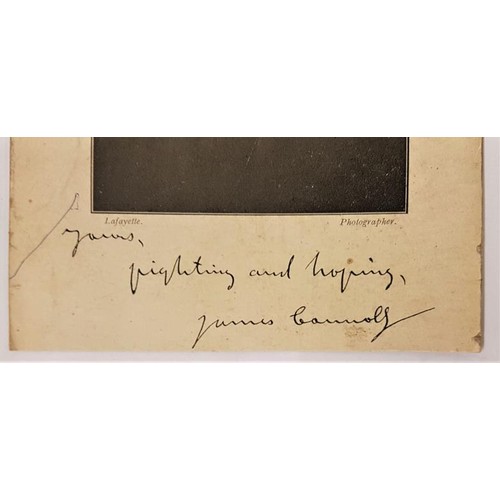 Lafayette. Photographer.
Yours,
fighting and hoping,
James Connolly